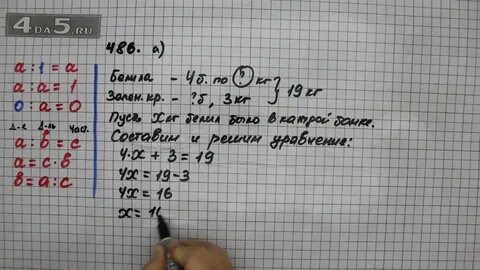 4DA5.RU
a : 1 = a
a : a = 1
0 : a = 0
Д-е Д-ль Част.
a : b = c
a = c · b
b = a : c
486. а)
Белила - 4б. по ? кг
Зелен. кр. - ?б, 3кг
} 19 кг
Пусть x кг белил было в каждой банке.
Составим и решим уравнение:
4·x + 3 = 19
4x = 19-3
4x = 16
x = 1